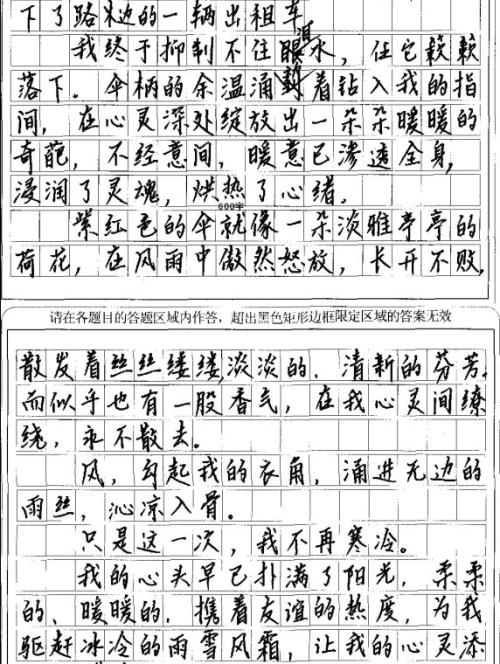 下了路边的一辆出租车
我终于抑制不住眼泪水，任它簌簌
落下。伞柄的余温涌动着钻入我的指
间，在心灵深处绽放出一朵朵暖暖的
奇葩，不经意间，暖意已渗透全身，
浸润了灵魂，烘热了心绪。
600字
紫红色的伞就像一朵淡雅亭亭的
荷花，在风雨中傲然怒放，长开不败，
请在各题目的答题区域内作答，超出黑色矩形边框限定区域的答案无效
散发着丝丝缕缕，淡淡的、清新的芬芳，
而似乎也有一股香气，在我心灵间缭
绕，永不散去。
风，勾起我的衣角，涌进无边的
雨丝，沁凉入骨。
只是这一次，我不再寒冷。
我的心头早已扑满了阳光，柔柔
的、暖暖的，携着友谊的热度，为我
驱赶冰冷的雨雪风霜，让我的心灵添